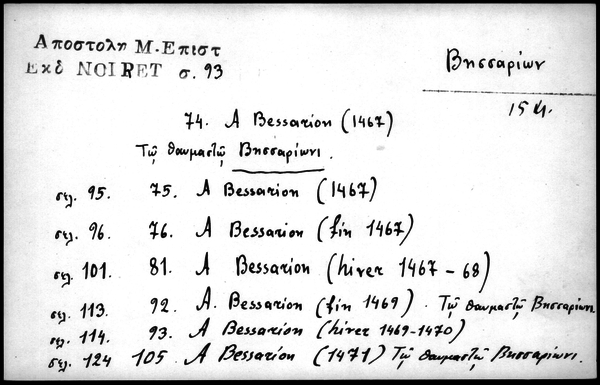 Αποστολη Μ. Επιστ
Εκδ NOIRET σ. 93
Βησσαρίων
15 ч.
74. A Bessarion (1467)
Τῷ θαυμαστῷ Βησσαρίωνι.
σελ. 95. 75. A Bessarion (1467)
σελ. 96. 76. A Bessarion (fin 1467)
σελ. 101. 81. A Bessarion (hiver 1467 - 68)
σελ. 113. 92. A. Bessarion (fin 1469) . Τῷ θαυμαστῷ Βησσαρίωνι.
σελ. 114. 93. A Bessarion (hiver 1469-1470)
σελ. 124 105 A Bessarion (1471) Τῷ θαυμαστῷ Βησσαρίωνι.